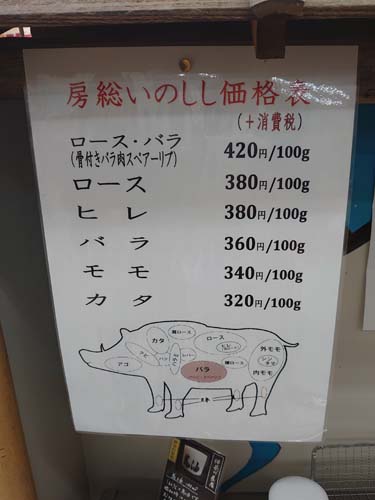 房総いのしし価格表
(+消費税)
ロース・バラ 420円/100g
(骨付きバラ肉スペアーリブ)
ロース 380円/100g
ヒレ 380円/100g
バラ 360円/100g
モモ 340円/100g
カタ 320円/100g
肩ロース
ロース
カタ
外モモ
アゴ
バラ
内モモ